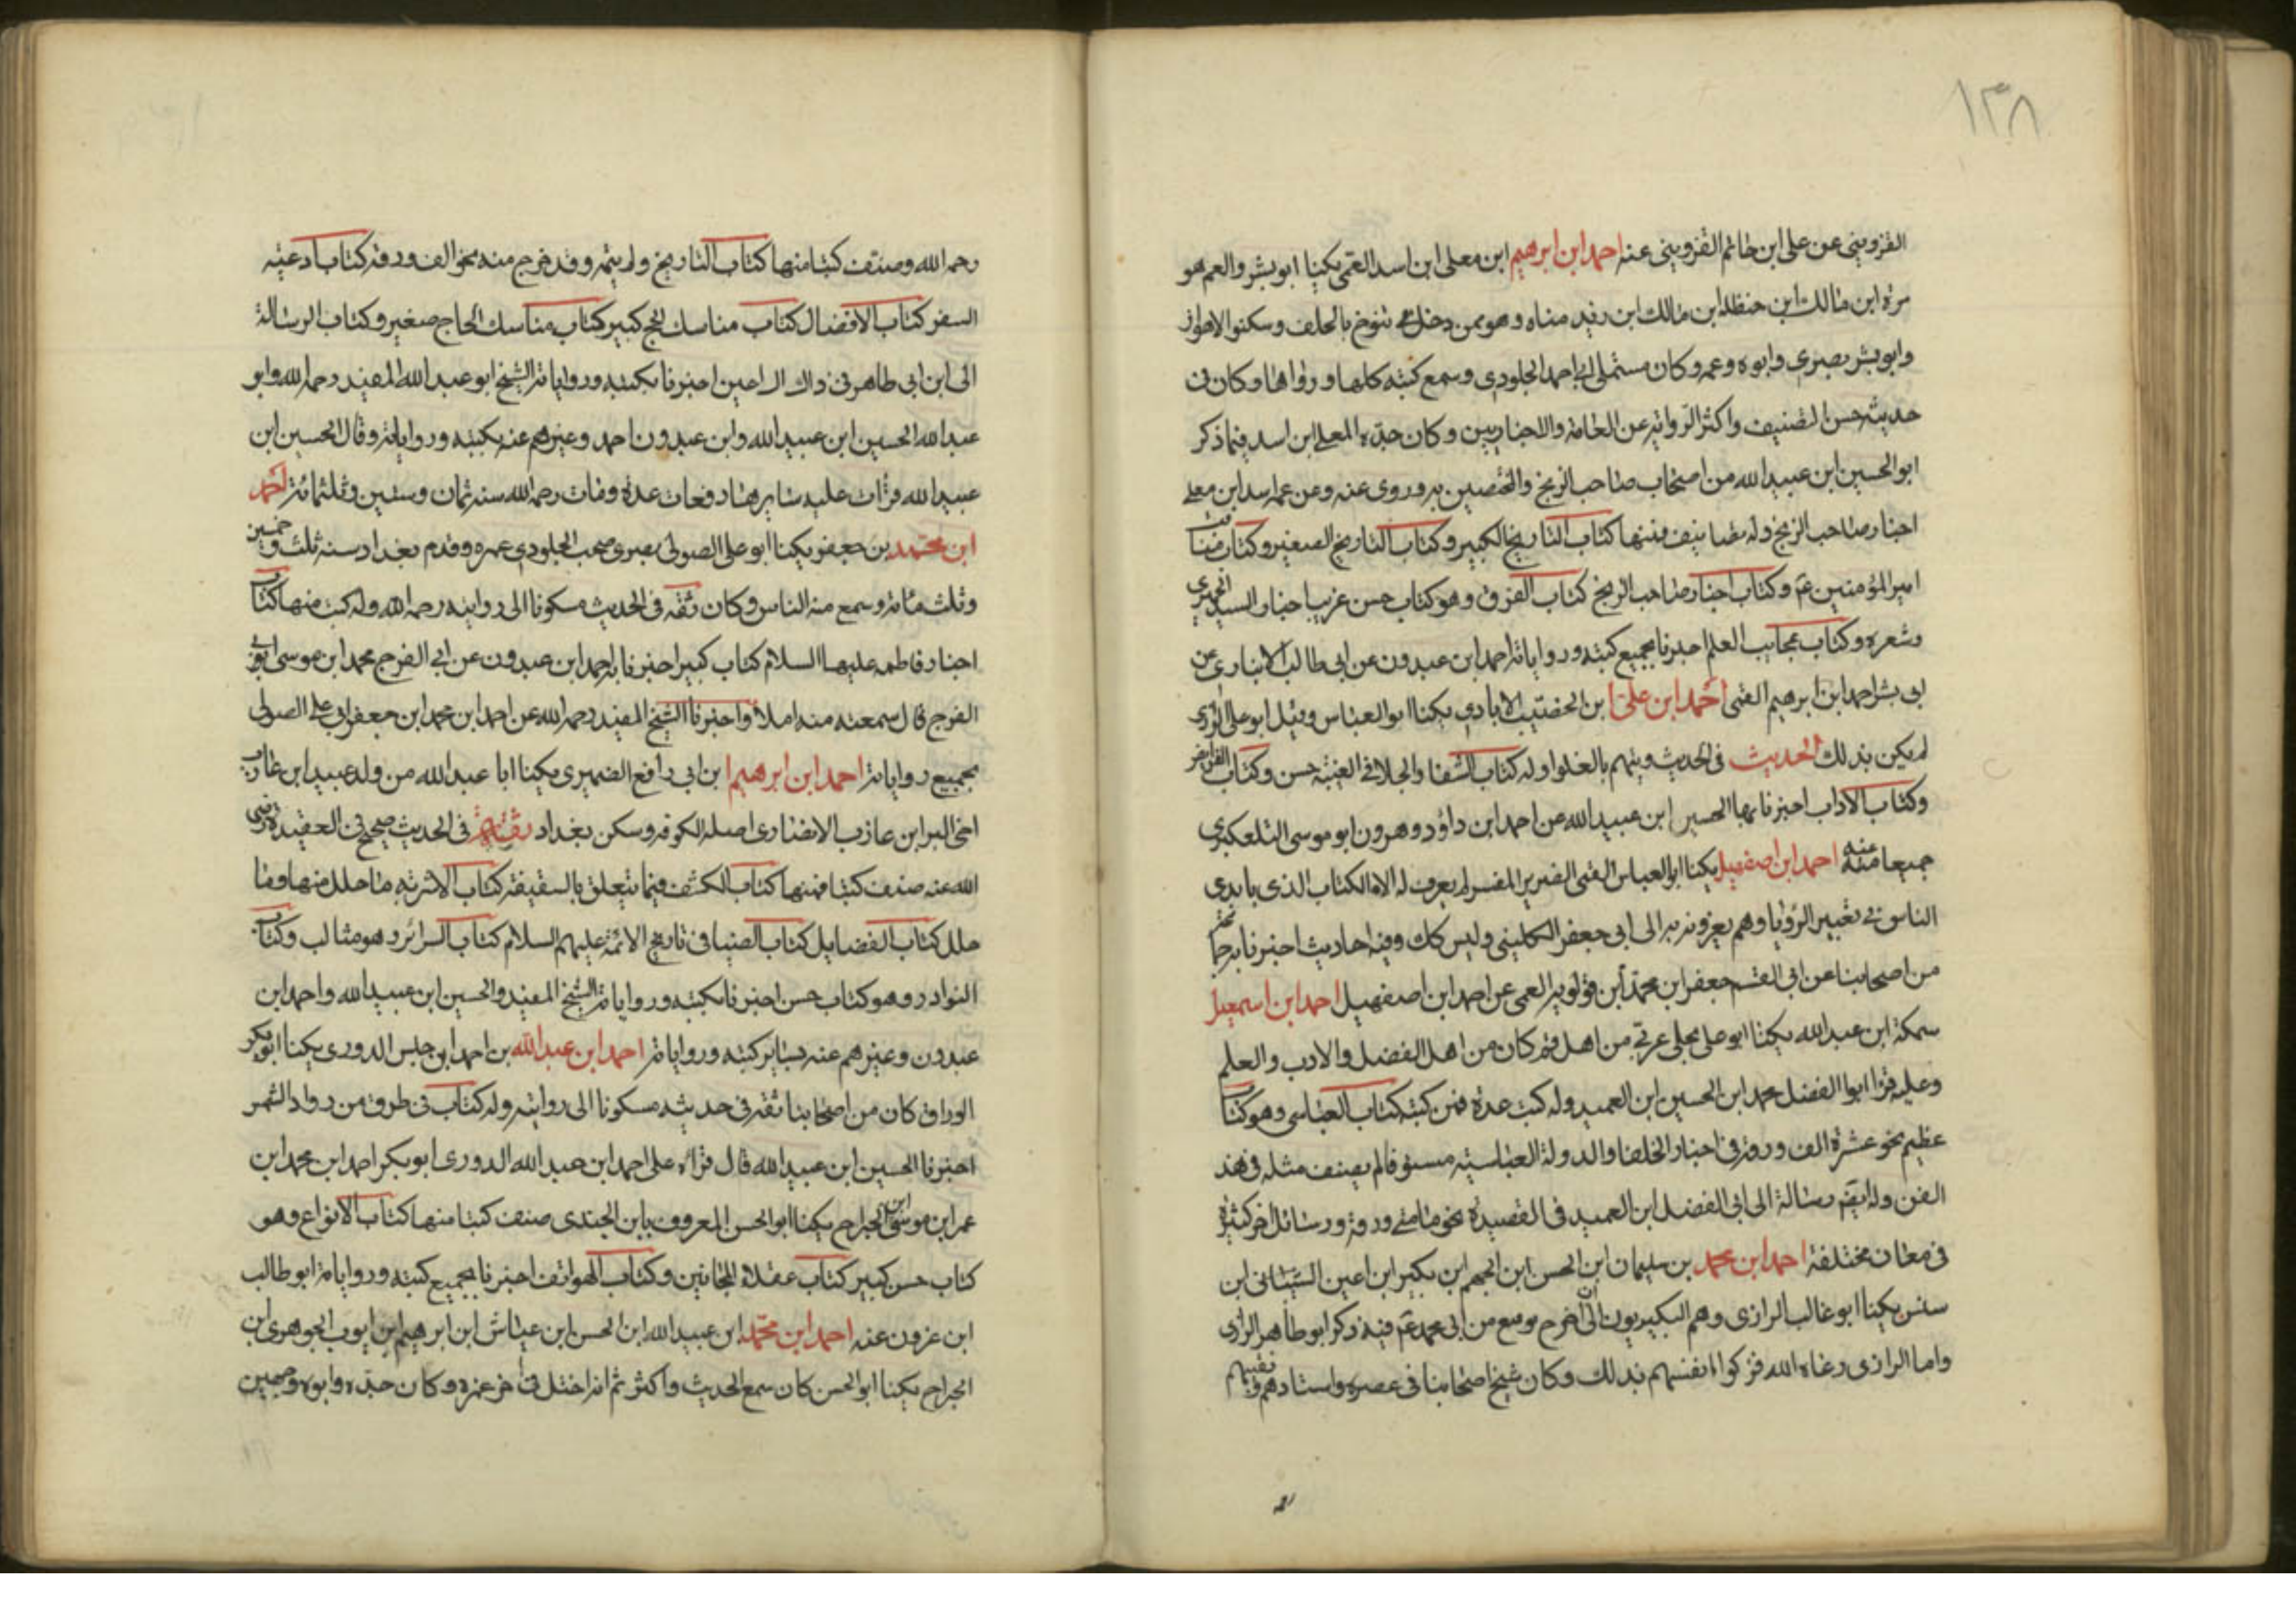 ١٣٨
القزويني عن على ابن حاتم القزويني عنه احمد ابن ابرهيم ابن معلى ابن اسد العمى يكنا ابو بشر والعم هو
مرة ابن مالك ابن حنظله ابن مالك ابن زيد مناه وهو ممن دخل في تنوخ بالحلف وسكنوا الاهواز
وابو بشر بصرى وابوه وعمه وكان مستملى ابى احمد الجلودى وسمع كتبه كلها ورواها وكان فى
حديثه حسن التصنيف واكثر الروايه عن العامة والاخباريين وكان جده المعلى ابن اسد فيما ذكر
ابو الحسين ابن عبيد الله من اصحاب صاحب الزنج والمختصين به وروى عنه وعن عمه اسد ابن معلى
اخبار صاحب الزنج وله تصانيف فمنها كتاب التاريخ الكبير وكتاب التاريخ الصغير وكتاب مناقب
امير المؤمنين عم وكتاب اخبار صاحب الزنج كتاب الفرق وهو كتاب حسن غريب اخبار السيد الحميرى
وشعره وكتاب عجايب العلم اخبرنا بجميع كتبه ورواياته احمد ابن عبدون عن ابى طالب الانبارى عن
ابى بشر احمد ابن ابرهيم القمى احمد ابن على ابن الخضيب الايادى يكنا ابو العباس وقيل ابو على الرازى
لم يكن بذلك الحديث فى الحديث ويتهم بالغلو وله كتاب الشفا والجلا فى الغيبة حسن وكتاب الفرايض
وكتاب الاداب اخبرنا بها الحسين ابن عبيد الله عن احمد ابن داؤد وهرون ابو موسى التلعكبرى
جميعا عنه احمد ابن اصفهيل يكنا ابو العباس القمى الضرير المفسر لم يعرف له الا الكتاب الذى بايدى
الناس فى تعبير الرؤيا وهم يعزونه الى ابى جعفر الكلينى وليس كك وفيه احاديث اخبرنا به جماعة
من اصحابنا عن ابى القسم جعفر ابن محمد ابن قولويه العمى عن احمد ابن اصفهيل احمد ابن اسمعيل
سمكة ابن عبد الله يكنا ابو على بجلى عربى من اهل قم كان من اهل الفضل والادب والعلم
وعليه قرا ابو الفضل محمد ابن الحسين ابن العميد وله كتب عدة فمن كتبه كتاب العباسى وهو كتاب
عظيم نحو عشرة الف ورقة فى اخبار الخلفا والدولة العباسيه مستوفا لم يصنف مثله فى هذ
الفن وله ايقم رسالة الى ابى الفضل ابن العميد فى القصيدة نحو مامتى ورقة ورسائل اخر كثيرة
فى معان مختلفة احمد ابن محمد بن سليمان ابن الحسن ابن الجهم ابن بكير ابن اعين الشيبانى ابن
سنسن يكنا ابو غالب الرازى وهم البكيريون الى ان خرج توقيع من ابى محمد عم فيه ذكر ابو طاهر الرازى
واما الرازى رعاه الله فذكروا انفسهم بذلك وكان شيخ اصحابنا فى عصره واستادهم وفقيههم
رحمه الله وصنف كتبا منها كتاب التاريخ ولم يتمه وقد خرج منه نحو الف ورقة كتاب ادعيه
السفر كتاب الافضال كتاب مناسك الحج كبير كتاب مناسك الحاج صغير وكتاب الرسالة
الى ابن ابى طاهر فى ذاك ال اعين اخبرنا بكتبه ورواياته الشيخ ابو عبد الله المفيد رحمه الله وابو
عبد الله الحسين ابن عبيد الله وابن عبدون احمد وغيرهم عنه بكتبه ورواياته وقال الحسين ابن
عبيد الله قرات عليه سايرها دفعات عدة ومات رحمه الله سنه ثمان وستين وثلثمائة احمد
ابن محمد بن جعفر يكنا ابو على الصولى بصرى صحب الجلودى عمره وقدم بغداد سنه ثلث وخمسين
وثلث مائة وسمع منه الناس وكان ثقه فى الحديث مسكونا الى روايته رحمه الله وله كتب منها كتاب
اخبار فاطمه عليها السلام كتاب كبير اخبرنا به احمد ابن عبدون عن ابى الفرج محمد ابن موسى ابو
الفرج قال سمعته منه املاً واخبرنا الشيخ المفيد رحمه الله عن احمد ابن محمد ابن جعفر ابى على الصولى
بجميع رواياته احمد ابن ابرهيم ابن ابى رافع الضميرى يكنا ابا عبد الله من ولد عبيد ابن عازب
اخى البر ابن عازب الانصارى اصله الكوفه وسكن بغداد ثقة فى الحديث صحيح فى العقيدة رضى
الله عنه صنف كتبا فمنها كتاب الكشف فيما يتعلق بالسقيفة كتاب الاشربه ما حلل منها وما
حلل كتاب الفضايل كتاب الضيا فى تاريخ الائمة عليهم السلام كتاب السرائر وهو مثالب وكتاب
النوادر وهو كتاب حسن اخبرنا بكتبه ورواياته الشيخ المفيد والحسين ابن عبيد الله واحمد ابن
عبدون وغيرهم عنه بساير كتبه ورواياته احمد ابن عبد الله بن احمد ابن جلس الدورى يكنا ابو بكر
الوراق كان من اصحابنا ثقة فى حديثه مسكونا الى روايته وله كتاب فى طرق من رواد الشمر
اخبرنا الحسين ابن عبيد الله قال قراه على احمد ابن عبد الله الدورى ابو بكر احمد ابن محمد ابن
عمر ابن موسى ابن الجراح يكنا ابو الحسن المعروف بابن الجندى صنف كتبا منها كتاب الانواع وهو
كتاب حسن كبير كتاب عقلاء المجانين وكتاب الهواتف اخبرنا بجميع كتبه ورواياته ابو طالب
ابن عزون عنه احمد ابن محمد ابن عبيد الله ابن الحسن ابن عياش ابن ابرهيم ابن ايوب الجوهرى ابن
الجراح يكنا ابو الحسن كان سمع الحديث واكثر ثم انه اختل فى اخر عمره وكان جده وابوه وجهين